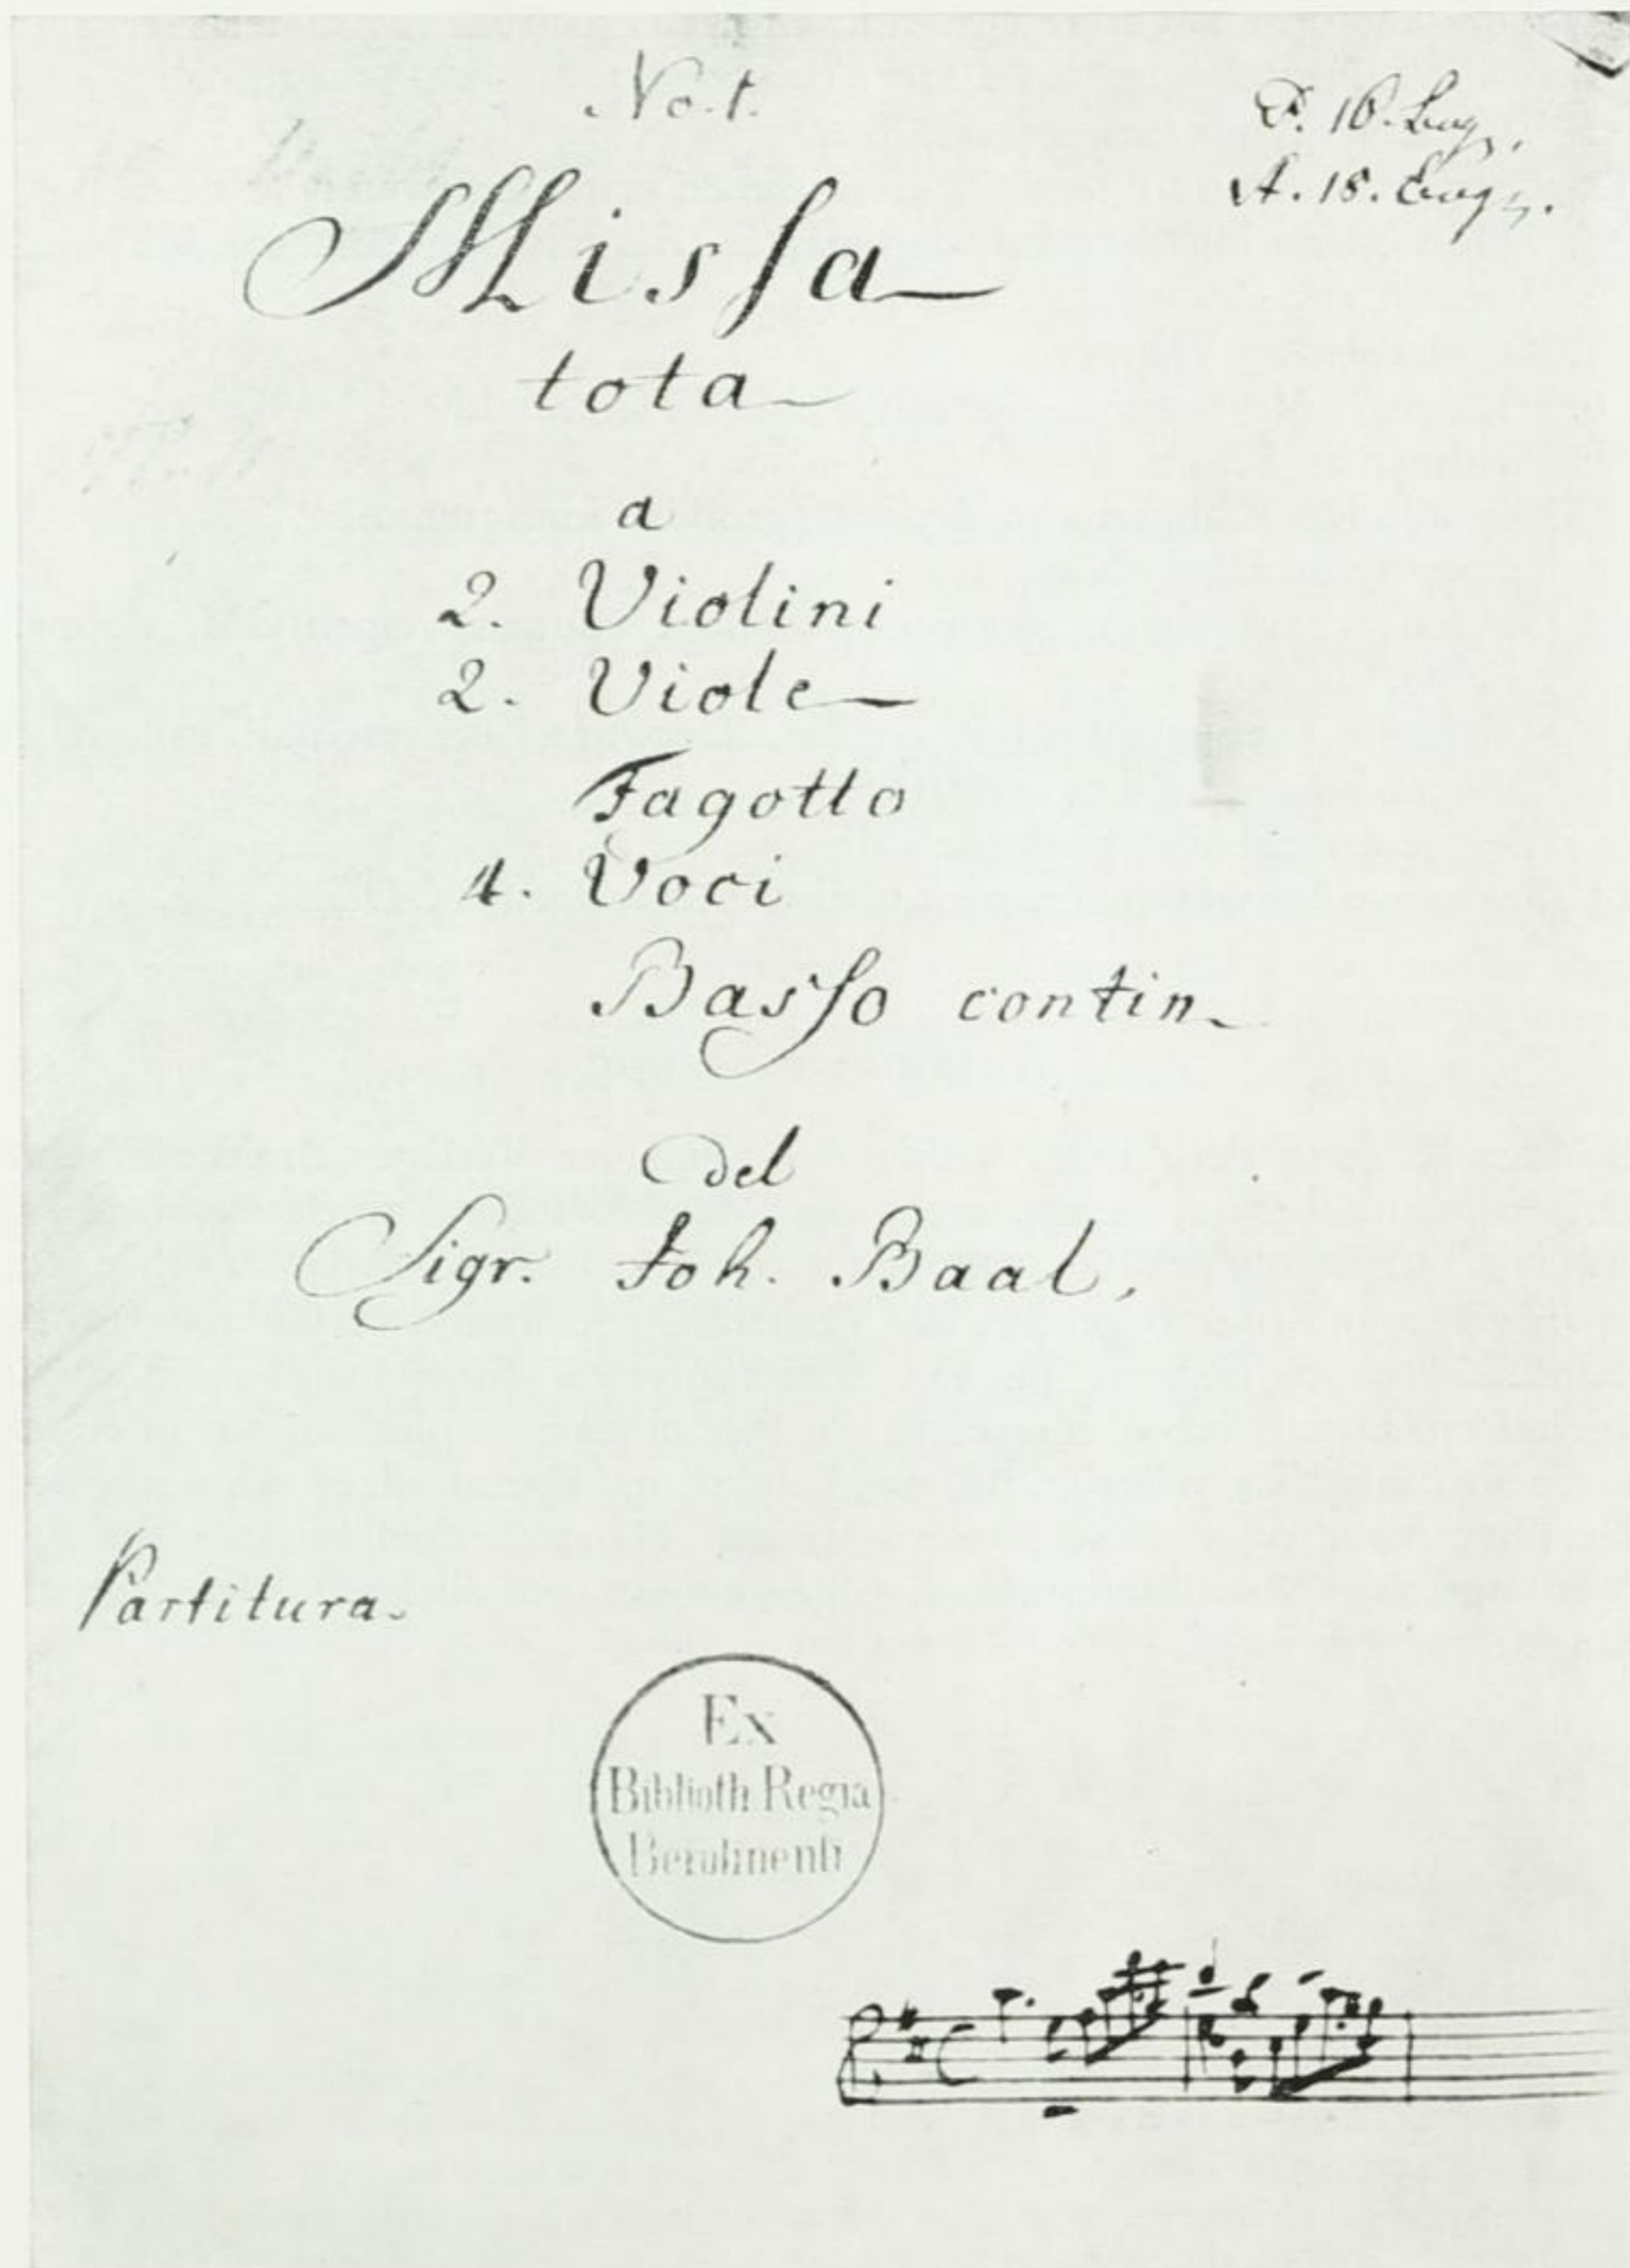 No. 1.
P. 16. Bog.
A. 18. Bog.
Missa
tota
a
2. Violini
2. Viole
Fagotto
4. Voci
Basso contin.
Del
Sigr. Joh. Baal.
Partitura.
Ex
Biblioth Regia
Berolinensi